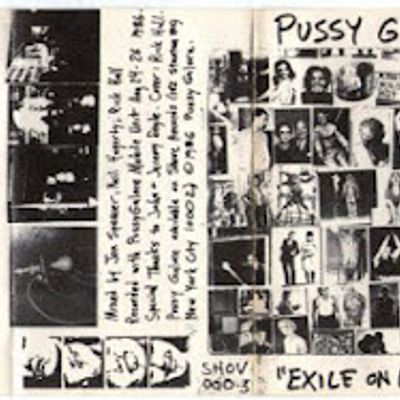 Mixed by Jon Spencer, Neil Hagerty, Rick Hall
Recorded with Pussy Galore Mobile Unit Aug 19-20 1986.
Special Thanks to Julie + Jeremy Cover: Rick Hall.
Pussy Galore available on Shove Records
New York City 10002 ©1986 Pussy Galore.
SHOV
000-3
PUSSY G
"EXILE ON